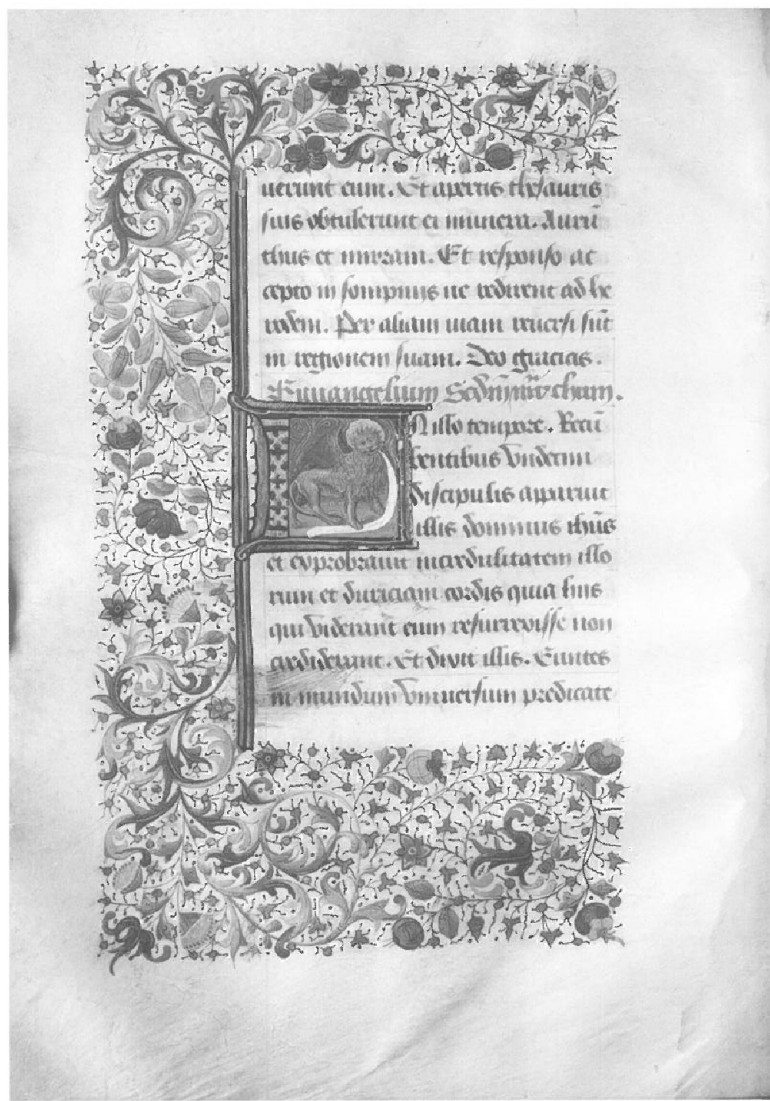 uerunt eum. Et apertis thesauris
suis obtulerunt ei munera. Aurū
thus et mirram. Et responso ac
cepto in sompnis ne redirent ad he
rodem. Per aliam uiam reuersi sūt
in regionem suam. Deo gracias.
Euuangelium Scdm̄ marchum.
In illo tempore. Recū
bentibus vndecim
discipulis apparuit
illis dominus ihūs
et exprobrauit incredulitatem illo
rum et duriciam cordis quia hiis
qui viderant eum resurrexisse non
crediderant. Et dixit illis. Euntes
in mundum vniuersum predicate